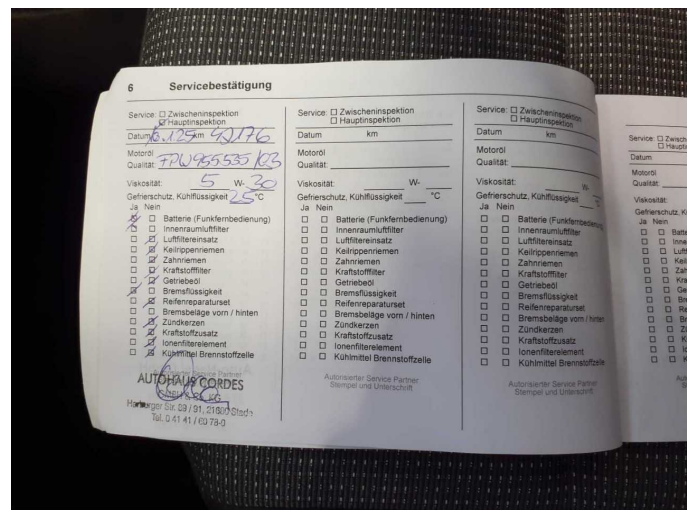 6 Servicebestätigung
Service: ☐ Zwischeninspektion
☒ Hauptinspektion
Datum km 42176
Motoröl
Qualität: FPW955535/03
Viskosität: 5 W- 30
Gefrierschutz, Kühlflüssigkeit 25 °C
Ja Nein
☒ ☐ Batterie (Funkfernbedienung)
☒ ☐ Innenraumluftfilter
☐ ☒ Luftfiltereinsatz
☐ ☒ Keilrippenriemen
☐ ☒ Zahnriemen
☐ ☒ Kraftstofffilter
☐ ☒ Getriebeöl
☒ ☐ Bremsflüssigkeit
☐ ☒ Reifenreparaturset
☐ ☐ Bremsbeläge vorn / hinten
☐ ☒ Zündkerzen
☐ ☒ Kraftstoffzusatz
☐ ☒ Ionenfilterelement
☐ ☒ Kühlmittel Brennstoffzelle
Autorisierter Service Partner
AUTOHAUS CORDES
GmbH & Co. KG
Harburger Str. 89 / 91, 21680 Stade
Tel. 0 41 41 / 60 78-0
Service: ☐ Zwischeninspektion
☐ Hauptinspektion
Datum km
Motoröl
Qualität:
Viskosität: W-
Gefrierschutz, Kühlflüssigkeit °C
Ja Nein
☐ ☐ Batterie (Funkfernbedienung)
☐ ☐ Innenraumluftfilter
☐ ☐ Luftfiltereinsatz
☐ ☐ Keilrippenriemen
☐ ☐ Zahnriemen
☐ ☐ Kraftstofffilter
☐ ☐ Getriebeöl
☐ ☐ Bremsflüssigkeit
☐ ☐ Reifenreparaturset
☐ ☐ Bremsbeläge vorn / hinten
☐ ☐ Zündkerzen
☐ ☐ Kraftstoffzusatz
☐ ☐ Ionenfilterelement
☐ ☐ Kühlmittel Brennstoffzelle
Autorisierter Service Partner
Stempel und Unterschrift
Service: ☐ Zwischeninspektion
☐ Hauptinspektion
Datum km
Motoröl
Qualität:
Viskosität: W-
Gefrierschutz, Kühlflüssigkeit °C
Ja Nein
☐ ☐ Batterie (Funkfernbedienung)
☐ ☐ Innenraumluftfilter
☐ ☐ Luftfiltereinsatz
☐ ☐ Keilrippenriemen
☐ ☐ Zahnriemen
☐ ☐ Kraftstofffilter
☐ ☐ Getriebeöl
☐ ☐ Bremsflüssigkeit
☐ ☐ Reifenreparaturset
☐ ☐ Bremsbeläge vorn / hinten
☐ ☐ Zündkerzen
☐ ☐ Kraftstoffzusatz
☐ ☐ Ionenfilterelement
☐ ☐ Kühlmittel Brennstoffzelle
Autorisierter Service Partner
Stempel und Unterschrift
Service: ☐ Zwischen
☐ Hauptin
Datum
Motoröl
Qualität:
Viskosität:
Gefrierschutz, K
Ja Nein